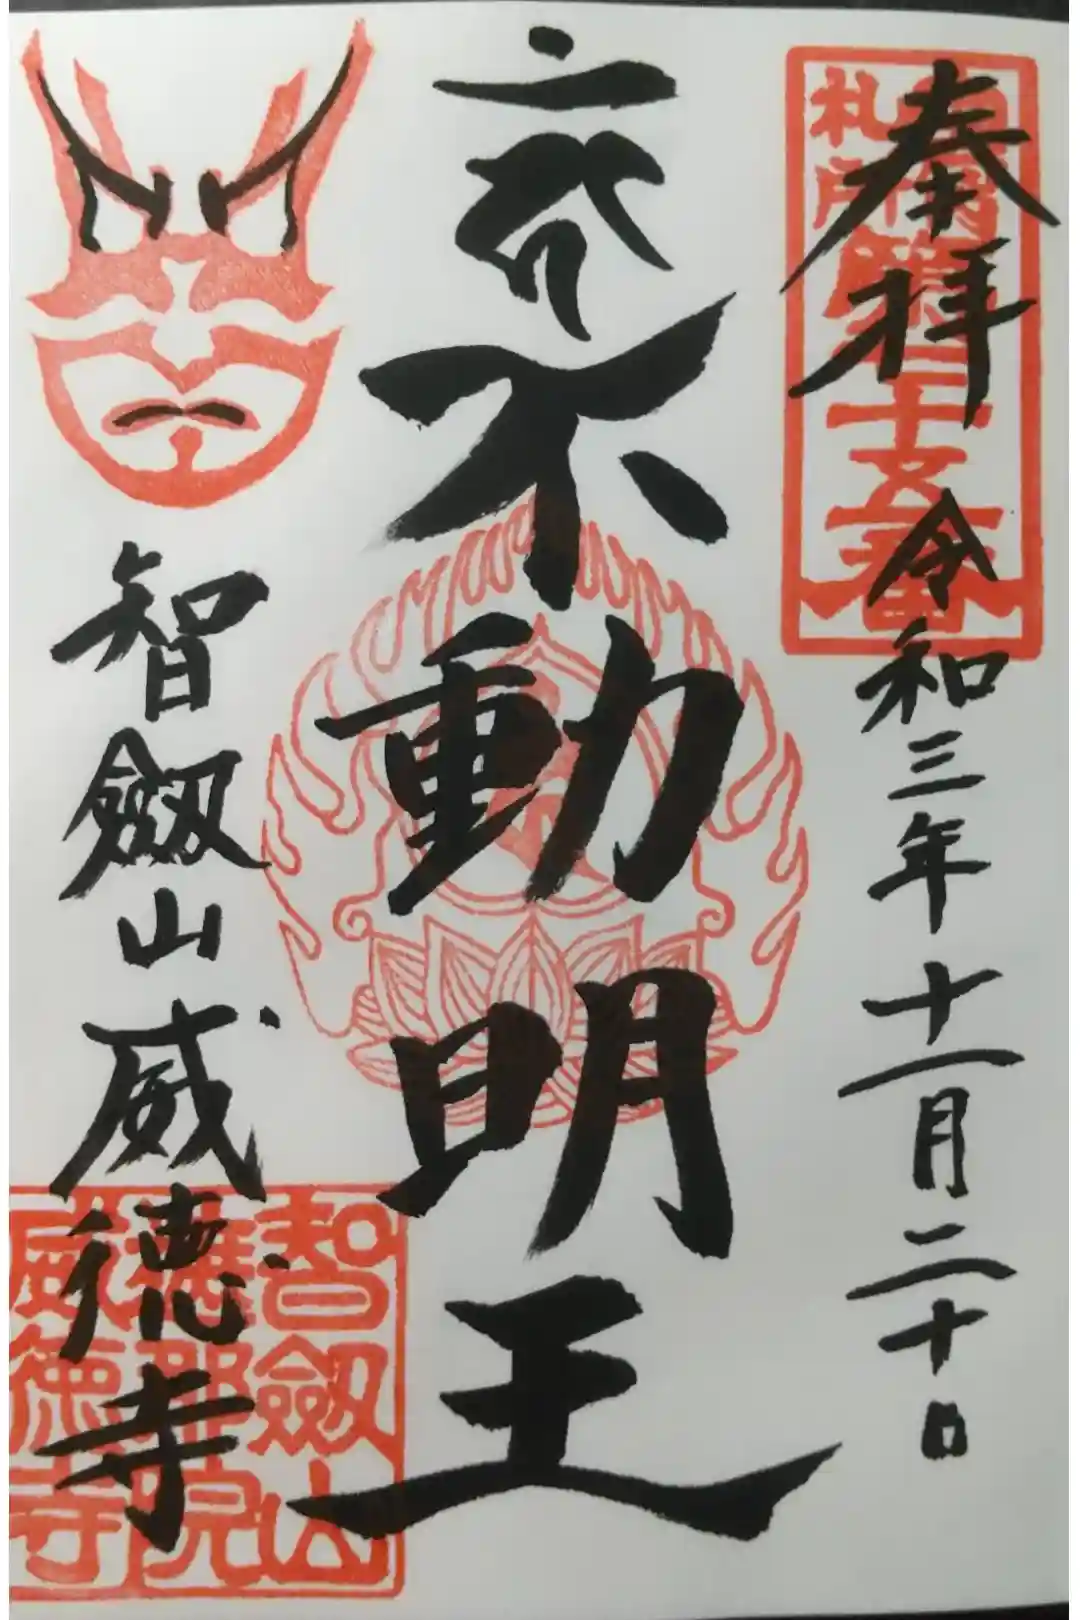 奉拝 令和三年十一月二十日
不動明王
智劔山威徳寺
札所
智劔山
威徳寺